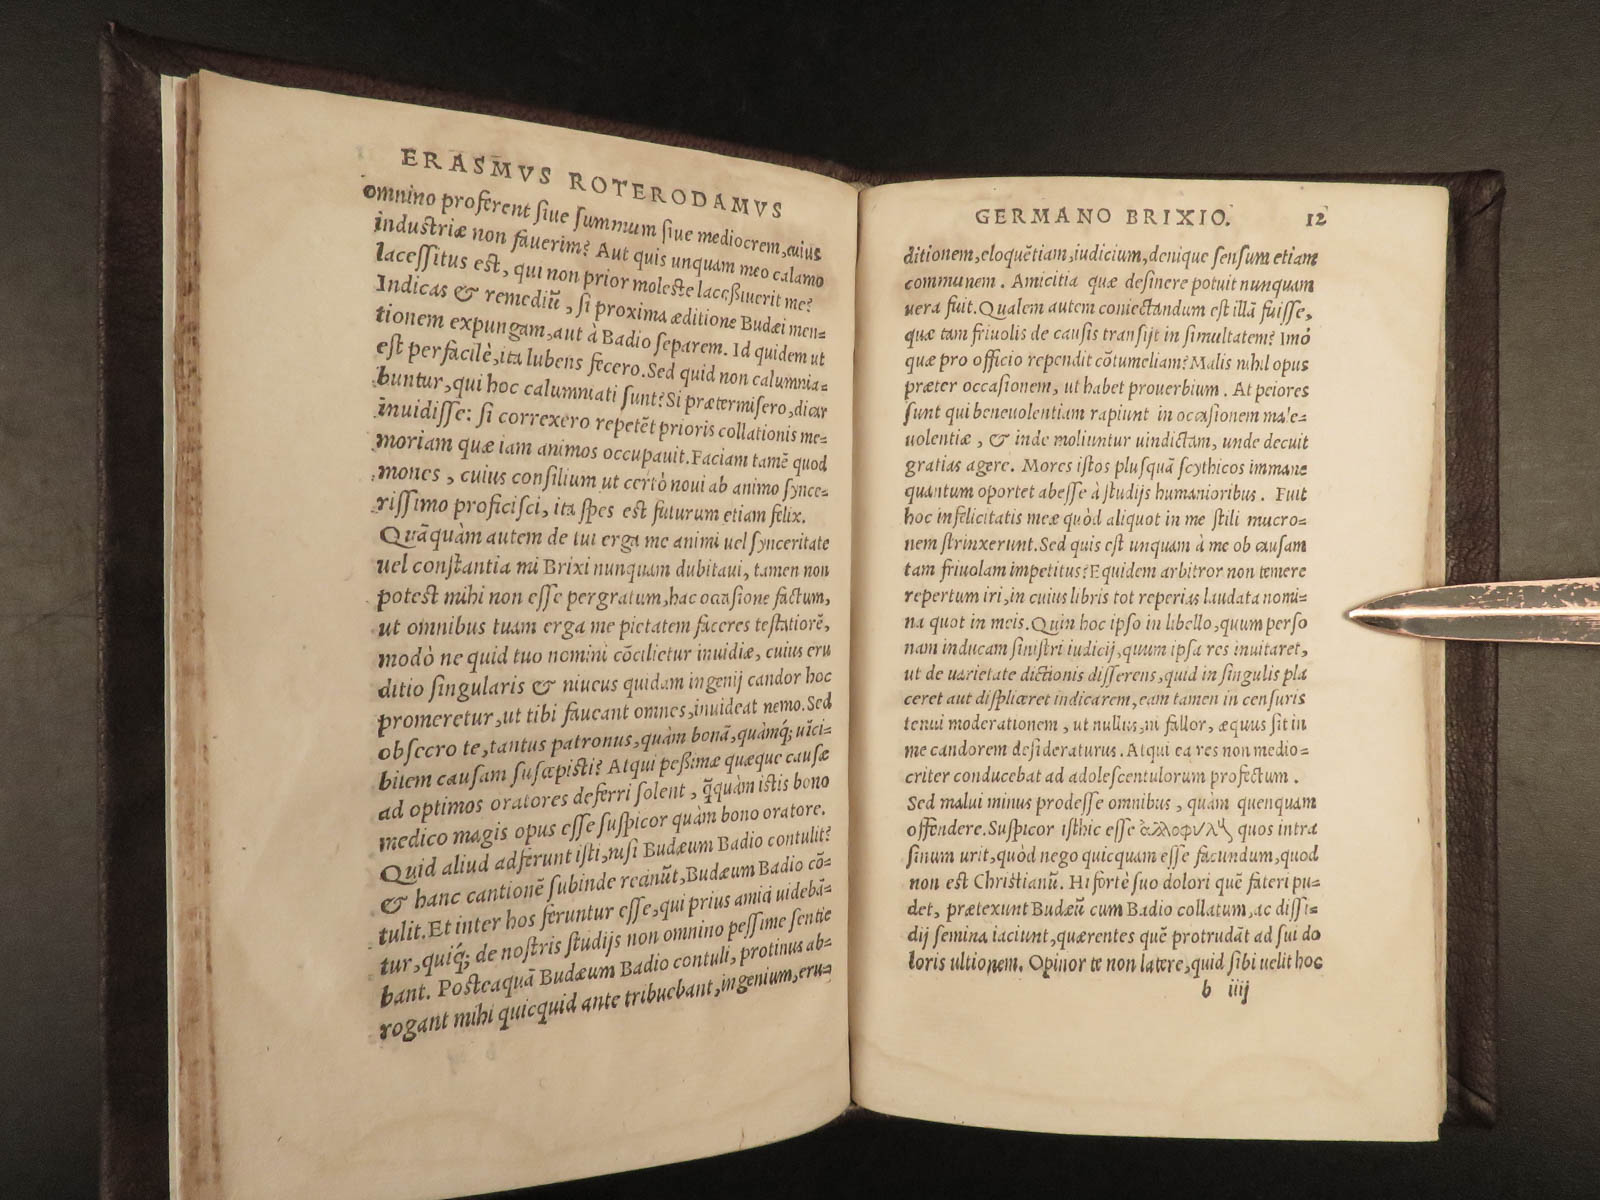 ERASMVS ROTERODAMVS
omnino proferent ſiue ſummum ſiue mediocrem, cuius
induſtriæ non fauerim? Aut quis unquam meo calamo
laceſſitus eſt, qui non prior moleſte laceßiuerit me?
Indicas & remediũ, ſi proxima æditione Budæi men=
tionem expungam, aut à Badio ſeparem. Id quidem ut
eſt perfacilè, ita lubens fecero. Sed quid non calumnia=
buntur, qui hoc calumniati ſunt? Si prætermiſero, dicar
inuidiſſe: ſi correxero repetẽt prioris collationis me=
moriam quæ iam animos occupauit. Faciam tamẽ quod
mones, cuius conſilium ut certò noui ab animo ſynce=
riſſimo proficiſci, ita ſpes eſt futurum etiam felix.
Quãquàm autem de tui erga me animi uel ſynceritate
uel conſtantia mi Brixi nunquam dubitaui, tamen non
poteſt mihi non eſſe pergratum, hac occaſione factum,
ut omnibus tuam erga me pietatem faceres teſtatiorẽ,
modò ne quid tuo nomini cõcilietur inuidiæ, cuius eru
ditio ſingularis & niueus quidam ingenij candor hoc
promeretur, ut tibi faueant omnes, inuideat nemo. Sed
obſecro te, tantus patronus, quàm bonã, quàmq́; uĩci=
bilem cauſam ſuſcepiſti? Atqui peßimæ quæque cauſæ
ad optimos oratores deferri ſolent, q̃quàm iſtis bono
medico magis opus eſſe ſuſpicor quàm bono oratore.
Quid aliud adferunt iſti, niſi Budæum Badio contulit?
& hanc cantionẽ ſubinde recinũt, Budæum Badio cõ=
tulit. Et inter hos feruntur eſſe, qui prius amici uidebã=
tur, quiq́; de noſtris ſtudijs non omnino peſſime ſentie
bant. Poſteaquã Budæum Badio contuli, protinus ab=
rogant mihi quicquid ante tribuebant, ingenium, eru=
GERMANO BRIXIO. 12
ditionem, eloquẽtiam, iudicium, denique ſenſum etiam
communem. Amicitia quæ deſinere potuit nunquam
uera fuit. Qualem autem coniectandum eſt illã fuiſſe,
quæ tam friuolis de cauſis tranſijt in ſimultatem? Imò
quæ pro officio rependit cõtumeliam? Malis nihil opus
præter occaſionem, ut habet prouerbium. At peiores
ſunt qui beneuolentiam rapiunt in occaſionem male=
uolentiæ, & inde moliuntur uindictam, unde decuit
gratias agere. Mores iſtos pluſquã ſcythicos immane
quantum oportet abeſſe à ſtudijs humanioribus. Fuit
hoc infelicitatis meæ quòd aliquot in me ſtili mucro=
nem ſtrinxerunt. Sed quis eſt unquam à me ob cauſam
tam friuolam impetitus? Equidem arbitror non temere
repertum iri, in cuius libris tot reperias laudata nomi=
na quot in meis. Quin hoc ipſo in libello, quum perſo
nam inducam ſiniſtri iudicij, quum ipſa res inuitaret,
ut de uarietate dictionis diſſerens, quid in ſingulis pla
ceret aut diſpliceret indicarem, eam tamen in cenſuris
tenui moderationem, ut nullus, ni fallor, æquus ſit in
me candorem deſideraturus. Atqui ea res non medio=
criter conducebat ad adoleſcentulorum profectum.
Sed malui minus prodeſſe omnibus, quàm quenquam
offendere. Suſpicor iſthic eſſe quos intra
ſinum urit, quòd nego quicquam eſſe facundum, quod
non eſt Chriſtianũ. Hi fortè ſuo dolori quẽ fateri pu=
det, prætexunt Budæũ cum Badio collatum, ac diſſi=
dij ſemina iaciunt, quærentes quẽ protrudãt ad ſui do
loris ultionem. Opinor te non latere, quid ſibi uelit hoc
b iiij